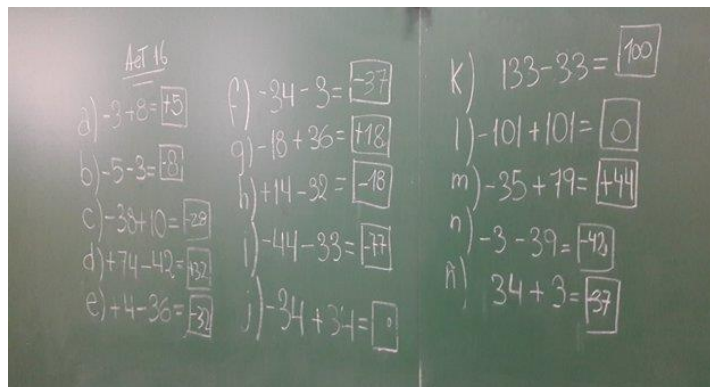 AcT 16
a) -3+8= +5
b) -5-3= -8
c) -38+10= -28
d) +74-42= +32
e) +4-36= -32
f) -34-3= -37
g) -18+36= +18
h) +14-32= -18
i) -44-33= -77
j) -34+34=
K) 133-33= 100
l) -101+101= 0
m) -35+79= +44
n) -3-39= -42
ñ) 34+3=